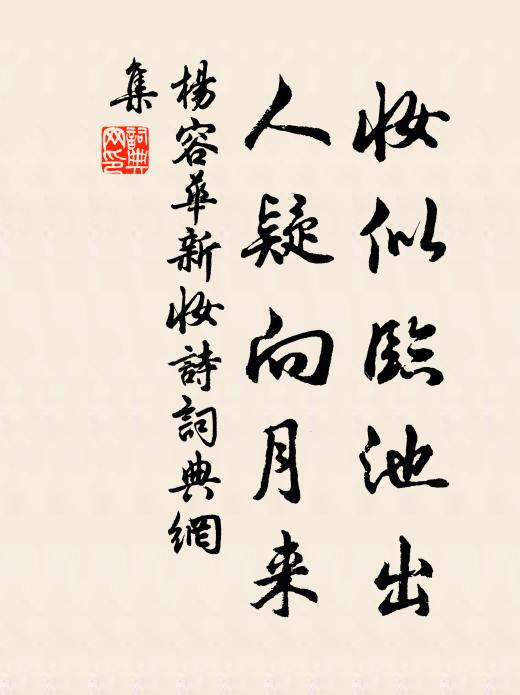 妝似臨池出
人疑向月来
楊容華新妝詩詞典網
集
詞典网印